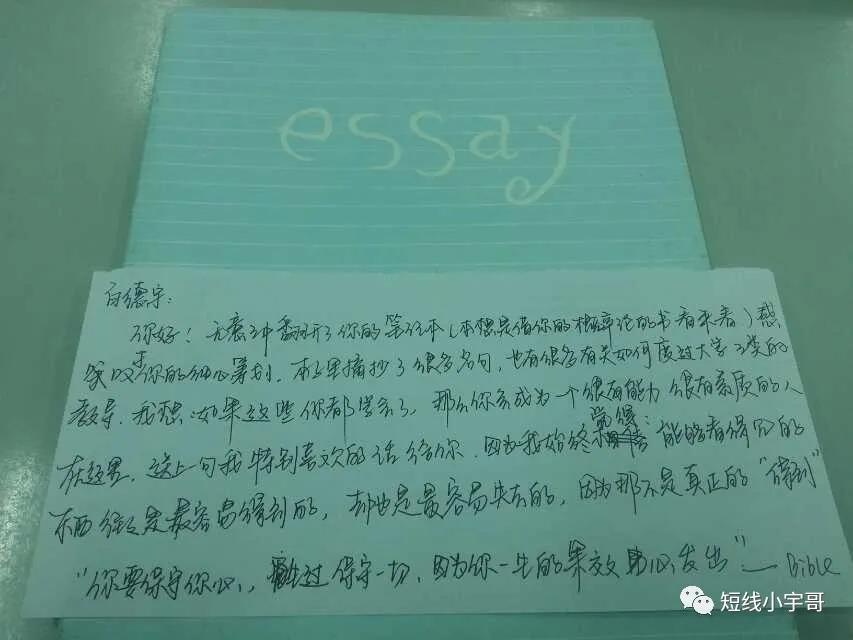 essay
白德宇:
你好!无意中翻开了你的笔记本(本想是借你的概率论的书看来着)感
叹于你的细心筹划,本里摘抄了很多名句,也有很多有关如何度过大学之类的
教导,我想如果这些你都学会了,那么你会成为一个很有能力很有素质的人
在这里,送上一句我特别喜欢的话给你,因为我始终觉得:能够看得见的
东西往往是最容易得到的,却也是最容易失去的,因为那不是真正的“得到”
“你要保守你心,胜过保守一切,因为你一生的果效由心发出”—Bible
短线小宇哥